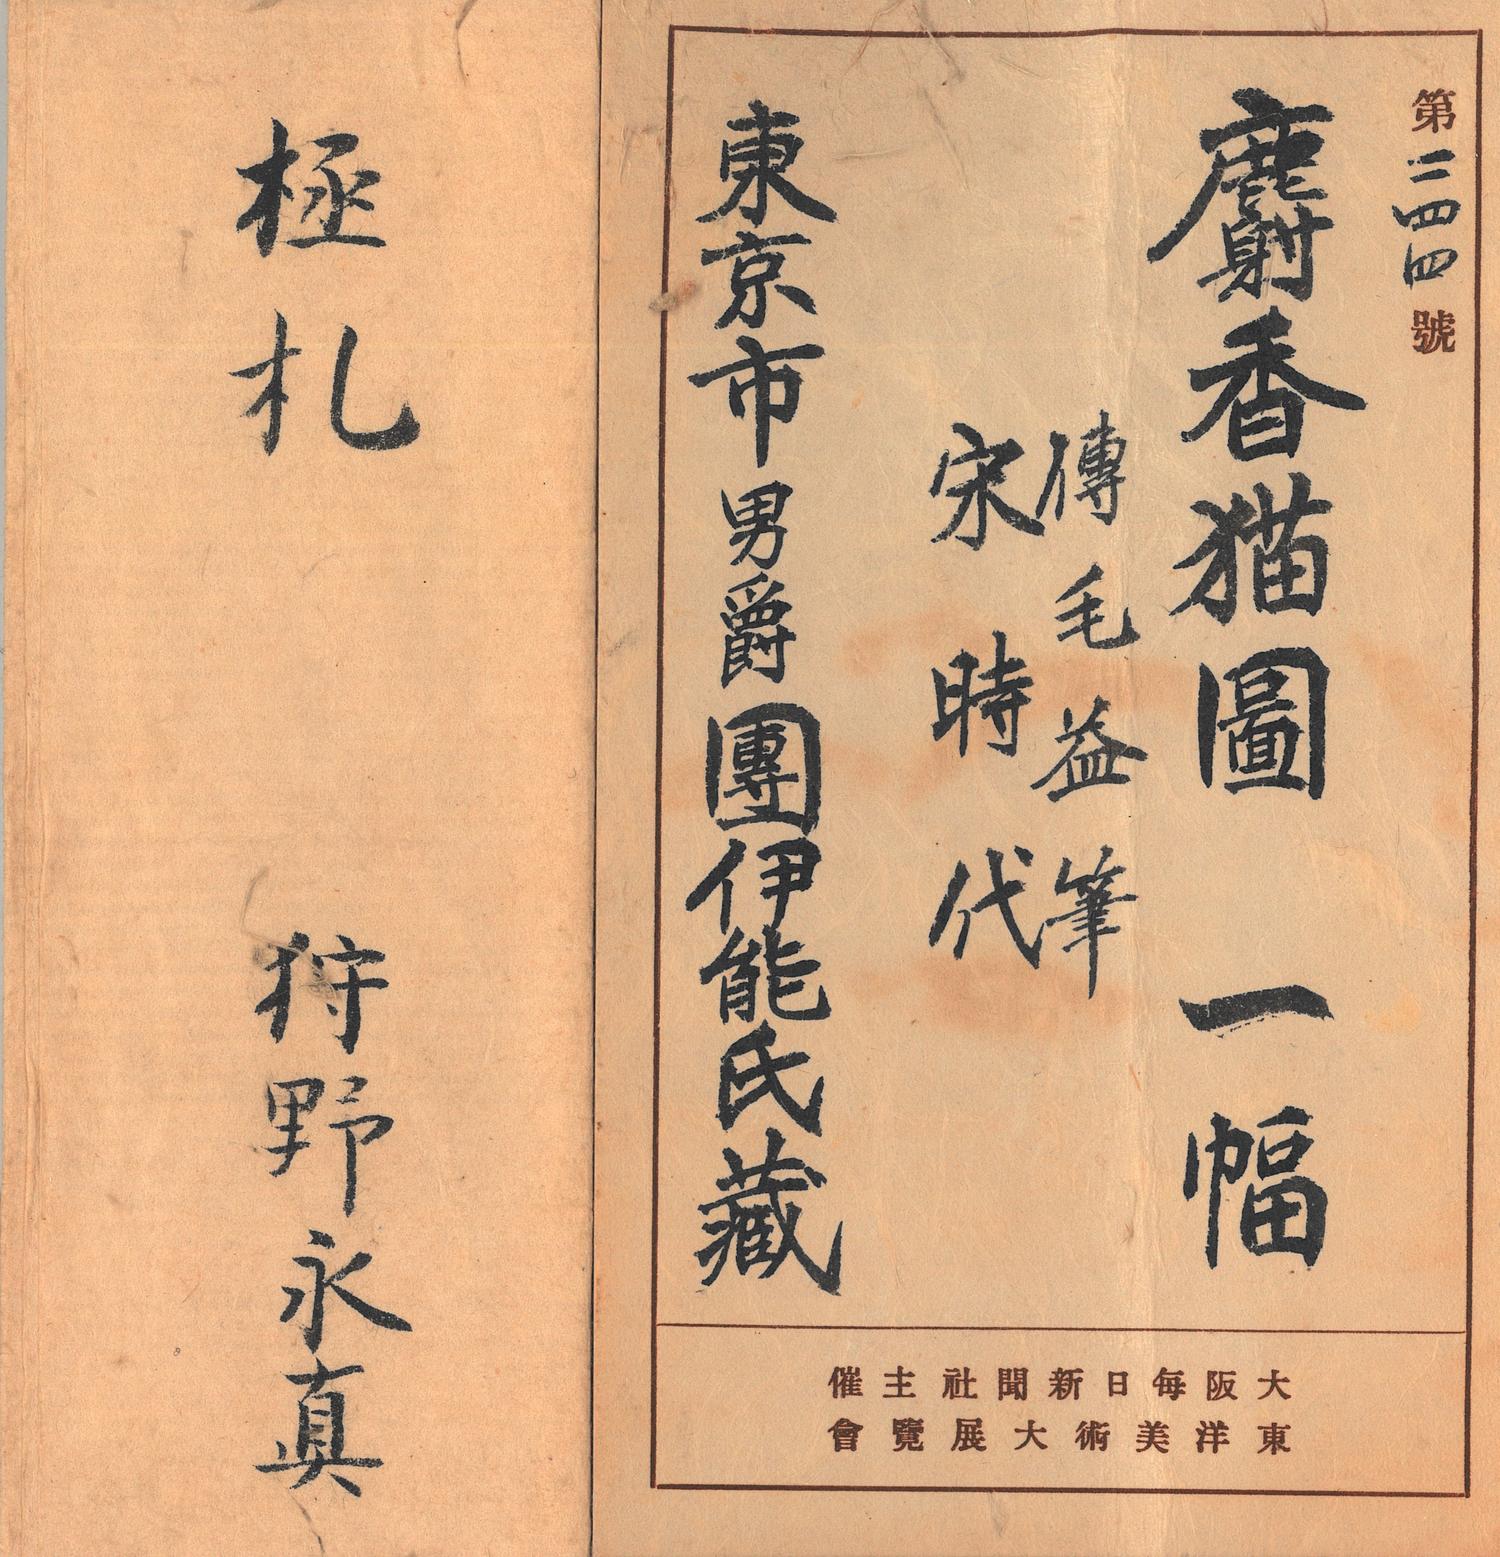 第二四四號
麝香猫圖 一幅
傳毛益筆
宋時代
東京市男爵團伊能氏藏
大阪每日新聞社主催
東洋美術大展覽會
極札 狩野永真